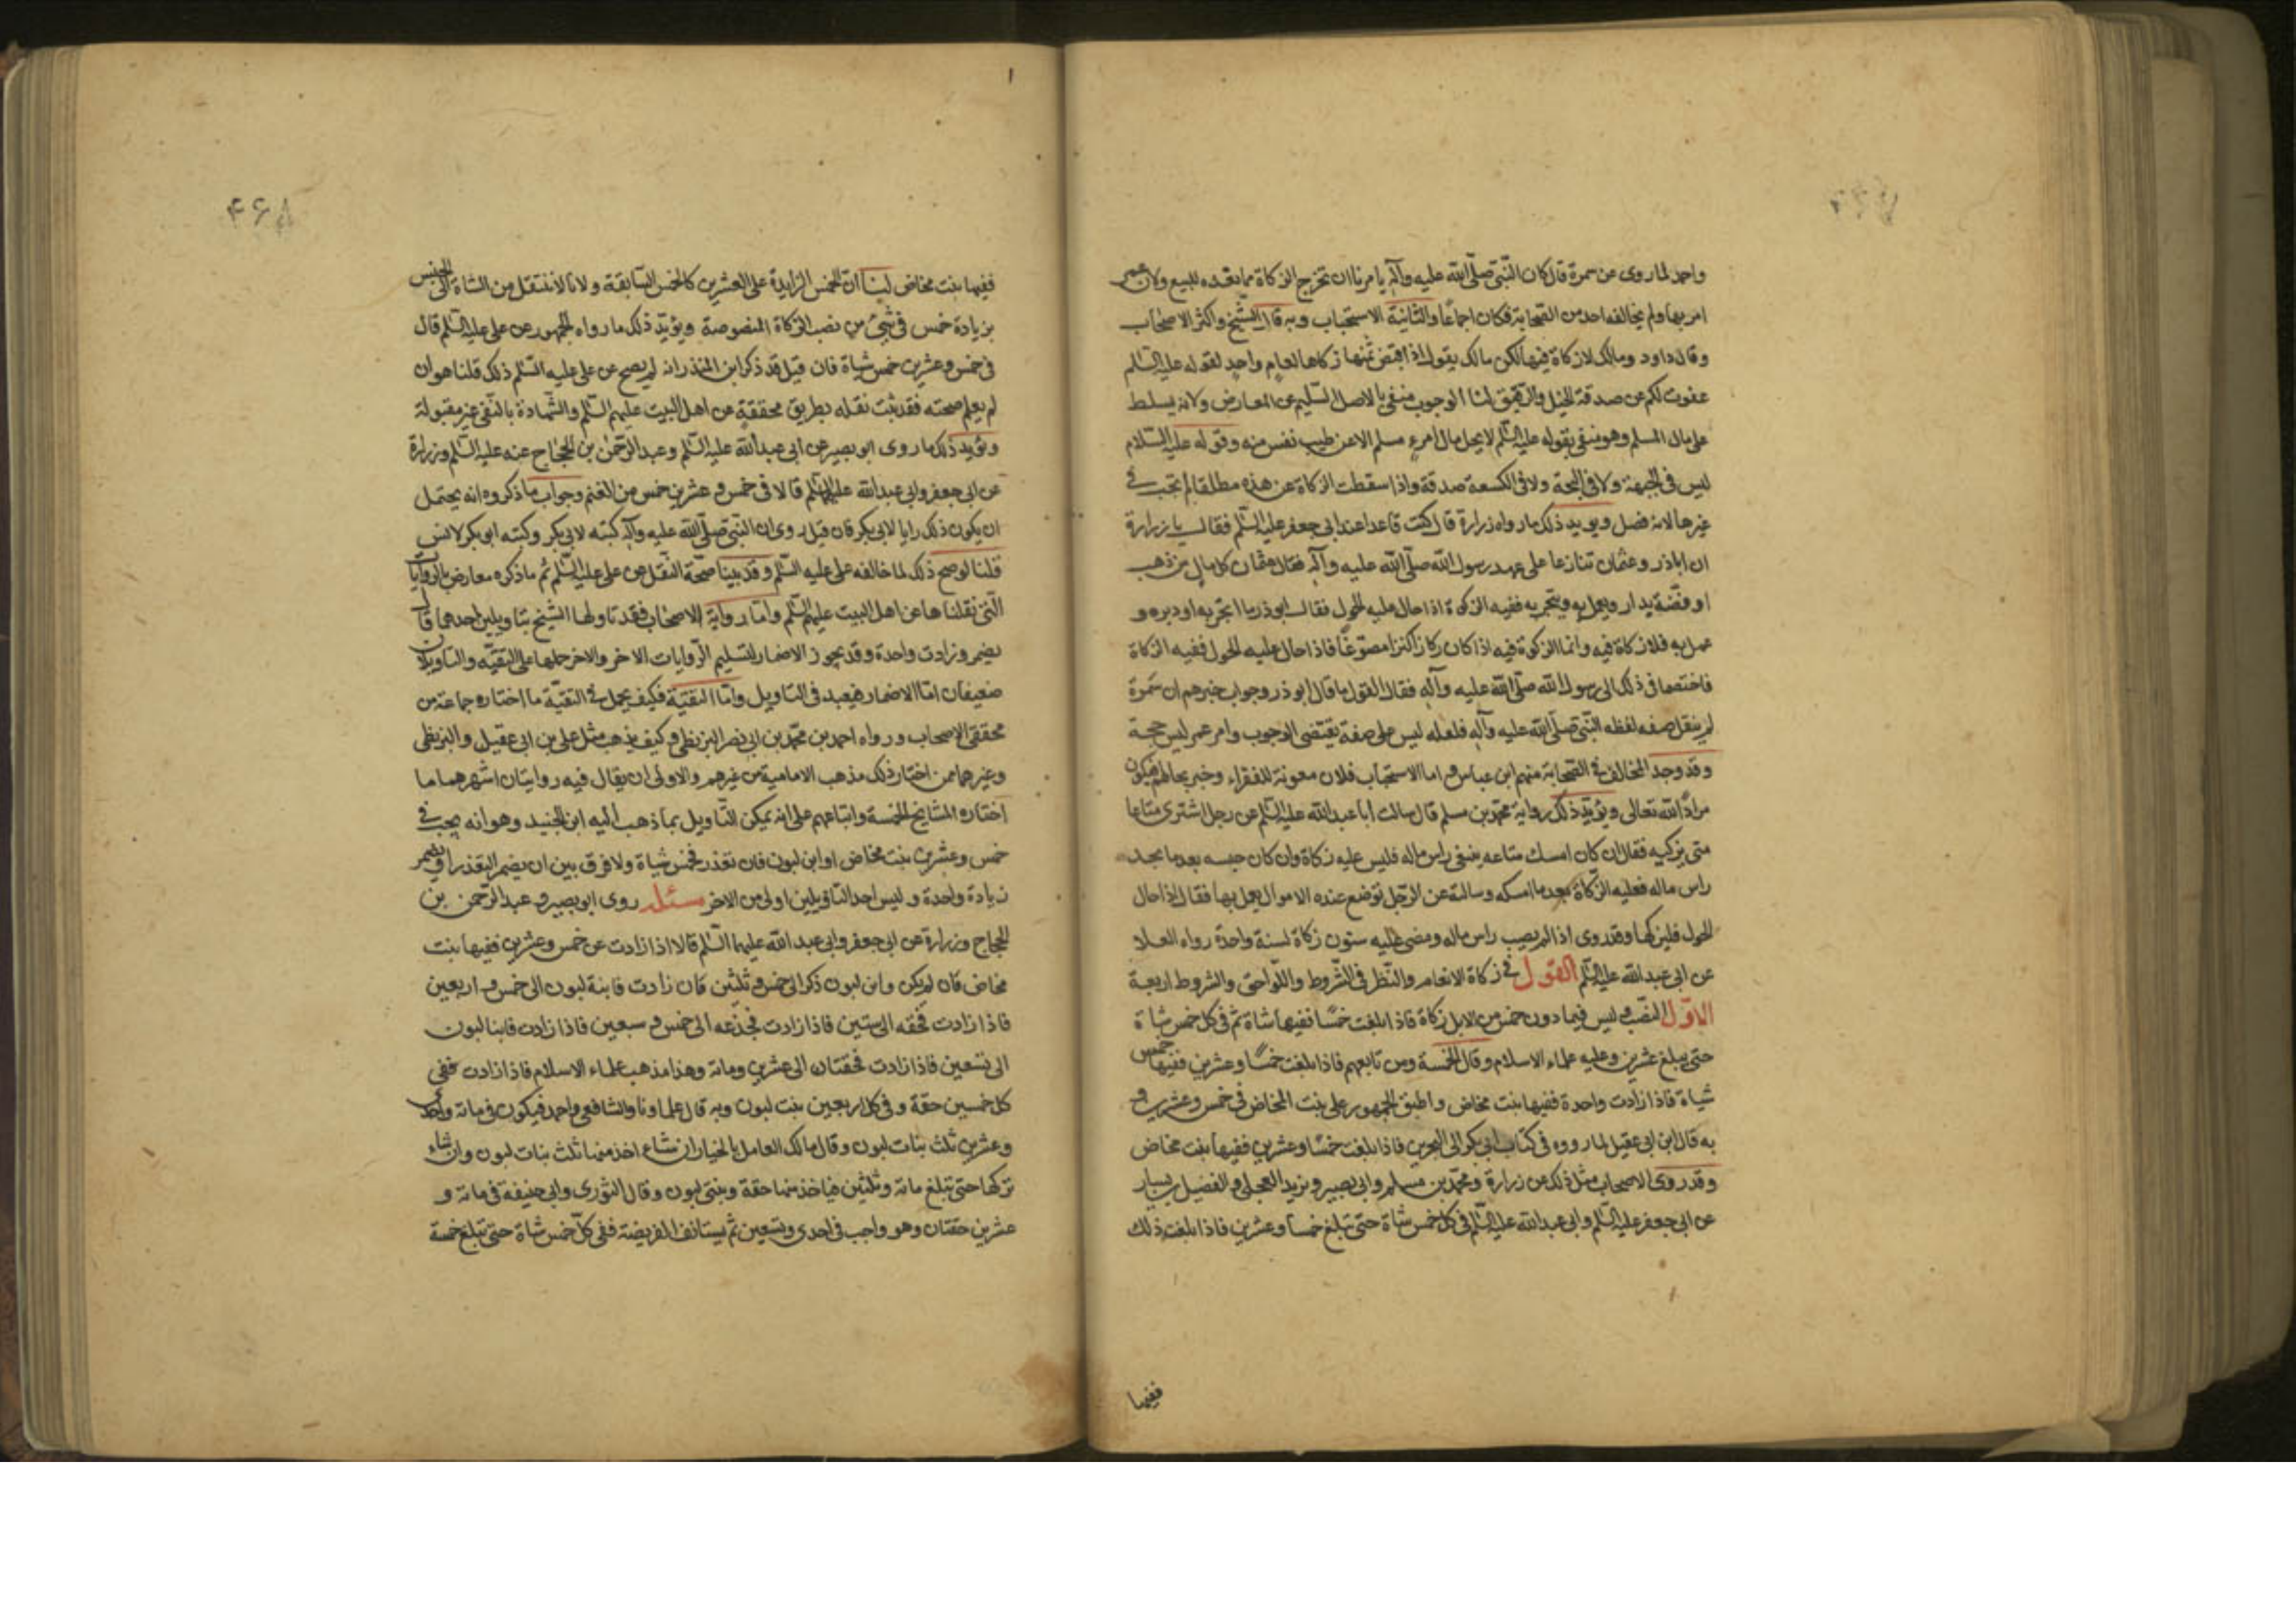 واحمد لما روى عن سمرة قال كان النبي صلى الله عليه وآله يامرنا ان نخرج الزكاة مما نعده للبيع ولان عمر
امر بها ولم يخالفه احد من الصحابة فكان اجماعا والثانية الاستحباب وبه قال الشيخ واكثر الاصحاب
وقال داود ومالك لا زكاة فيها لكن مالك يقول اذا قبض ثمنها زكاها لعام واحد لقوله عليه السلم
عفوت لكم عن صدقة الخيل والرقيق لنا الوجوب منفي بالاصل السليم عن المعارض ولانه يسلط
على مال المسلم وهو منفي بقوله عليه السلم لا يحل مال امرء مسلم الا عن طيب نفس منه وقوله عليه السلام
ليس في الجبهة ولا في النخة ولا في الكسعة صدقة واذا سقطت الزكاة عن هذه مطلقا لم تجب في
غيرها لانه فصل ويويد ذلك ما رواه زرارة قال كنت قاعدا عند ابي جعفر عليه السلم فقال يا زرارة
ان اباذر وعثمان تنازعا على عهد رسول الله صلى الله عليه وآله فقال عثمان كل مال من ذهب
او فضة يدار ويعمل به ويتجر به ففيه الزكوة اذا حال عليه الحول فقال ابوذر ما اتجر به او دير و
عمل به فلا زكاة فيه وانما الزكوة فيه اذا كان ركازا كنزا موضوعا فاذا حال عليه الحول ففيه الزكاة
فاختصما في ذلك الى رسول الله صلى الله عليه وآله فقال القول ما قال ابوذر وجواب خبرهم ان سمرة
لم ينقل صفه لفظه النبي صلى الله عليه وآله فلعله ليس على صفة يقتضى الوجوب وامر عمر ليس حجة
وقد وجد المخالف في الصحابة منهم ابن عباس واما الاستحباب فلان معونة للفقراء وخبر بحالهم فيكون
مرادا لله تعالى ويؤيد ذلك رواية محمد بن مسلم قال سالت ابا عبد الله عليه السلم عن رجل اشترى متاعا
متى يزكيه فقال ان كان امسك متاعه يبتغى راس ماله فليس عليه زكاة وان كان حبسه بعد ما يجد
راس ماله فعليه الزكاة بعد ما امسكه وسالته عن الرجل توضع عنده الاموال يعمل بها فقال اذا حال
الحول فليزكها وقد روى اذا لم يصب راس ماله ومضى عليه سنون زكاة لسنة واحدة رواه العلا
عن ابي عبد الله عليه السلم القول في زكاة الانعام والنظر في الشروط واللواحق والشروط اربعة
الاول النصب وليس فيما دون خمس من الابل زكاة فاذا بلغت خمسا ففيها شاة ثم في كل خمس شاة
حتى يبلغ عشرين وعليه علماء الاسلام وقال الخمسة ومن تابعهم فاذا بلغت خمسا وعشرين ففيها خمس
شياة فاذا زادت واحدة ففيها بنت مخاض واطبق الجمهور على بنت المخاض في خمس وعشرين و
به قال ابن ابي عقيل لما رووه في كتاب ابي بكر الى البحرين فاذا بلغت خمسا وعشرين ففيها بنت مخاض
وقد روى الاصحاب مثل ذلك عن زرارة ومحمد بن مسلم وابي بصير وبريد العجلي والفضيل بن يسار
عن ابي جعفر عليه السلم وابي عبد الله عليه السلم في كل خمس شاة حتى تبلغ خمسا وعشرين فاذا بلغت ذلك
ففيها
۴۶۸
ففيها بنت مخاض لنا ان الخمس الزايدة على العشرين كالخمس السابقة ولانا لا ننتقل من الشاة الى الجنس
بزيادة خمس في شئ من نصب الزكاة المنصوصة ويؤيد ذلك ما رواه الجمهور عن على عليه السلم قال
في خمس وعشرين خمس شياة فان قيل قد ذكر ابن المنذر انه لم يصح عن على عليه السلم ذلك قلنا هو ان
لم يعلم صحته فقد ثبت نقله بطريق محققة عن اهل البيت عليهم السلم والشهادة بالنفى غير مقبولة
ويؤيد ذلك ما روى ابو بصير عن ابي عبد الله عليه السلم وعبد الرحمن بن الحجاج عنه عليه السلم وزرارة
عن ابي جعفر وابي عبد الله عليهما السلم قالا في خمس وعشرين خمس من الغنم وجواب ما ذكروه انه يحتمل
ان يكون ذلك رايا لابي بكر فان قيل روى ان النبي صلى الله عليه وآله كتبه لابي بكر وكتبه ابو بكر لانس
قلنا لو صح ذلك لما خالفه على عليه السلم وقد بينا صحة النقل عن على عليه السلم ثم ما ذكره معارض بالروايات
التى نقلناها عن اهل البيت عليهم السلم واما رواية الاصحاب فقد تاولها الشيخ بتاويلين احدهما قال
يضمر وزادت واحدة وقد يجوز الاضمار لتسليم الروايات الاخر والاخر حملها على التقية والتاويلان
ضعيفان اما الاضمار فبعيد في التاويل واما التقية فكيف يحمل في التقية ما اختاره جماعة من
محققي الاصحاب ورواه احمد بن محمد بن ابي نصر البزنطي وكيف يذهب مثل على بن ابي عقيل والبزنطي
وغيرهما ممن اختار ذلك مذهب الامامية من غيرهم والاولى ان يقال فيه روايتان اشهرهما ما
اختاره المشايخ الخمسة واتباعهم على انه يمكن التاويل بما ذهب اليه ابن الجنيد وهو انه يجب في
خمس وعشرين بنت مخاض او ابن لبون فان تعذر فخمس شياة ولا فرق بين ان يضمر التعذر او يضمر
زيادة واحدة وليس احد التاويلين اولى من الاخر مسئلة روى ابو بصير وعبد الرحمن بن
الحجاج وزرارة عن ابي جعفر وابي عبد الله عليهما السلم قالا اذا زادت عن خمس وعشرين ففيها بنت
مخاض فان لم يكن وابن لبون ذكر الى خمس وثلثين فان زادت فابنة لبون الى خمس واربعين
فاذا زادت فحقه الى ستين فاذا زادت فجذعه الى خمس وسبعين فاذا زادت فابنا لبون
الى تسعين فاذا زادت فحقتان الى عشرين ومائة وهذا مذهب علماء الاسلام فاذا زادت ففى
كل خمسين حقة وفى كل اربعين بنت لبون وبه قال علماونا والشافعي واحمد فيكون في مائة واحد
وعشرين ثلث بنات لبون وقال مالك العامل بالخيار ان شاء اخذ منها ثلث بنات لبون وان شاء
تركها حتى تبلغ مائة وثلثين فياخذ منها حقة وبنتى لبون وقال الثورى وابي حنيفة في مائة و
عشرين حقتان وهو واجب في احدى وتسعين ثم يستانف الفريضة ففى كل خمس شاة حتى تبلغ خمسة